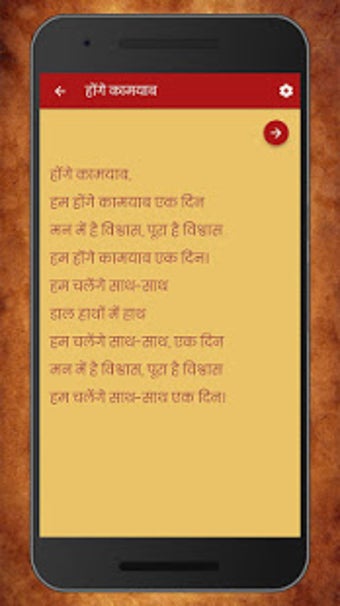 होंगे कामयाब
होंगे कामयाब,
हम होंगे कामयाब एक दिन
मन में है विश्वास, पूरा है विश्वास
हम होंगे कामयाब एक दिन।
हम चलेंगे साथ-साथ
डाल हाथों में हाथ
हम चलेंगे साथ-साथ, एक दिन
मन में है विश्वास, पूरा है विश्वास
हम चलेंगे साथ-साथ एक दिन।